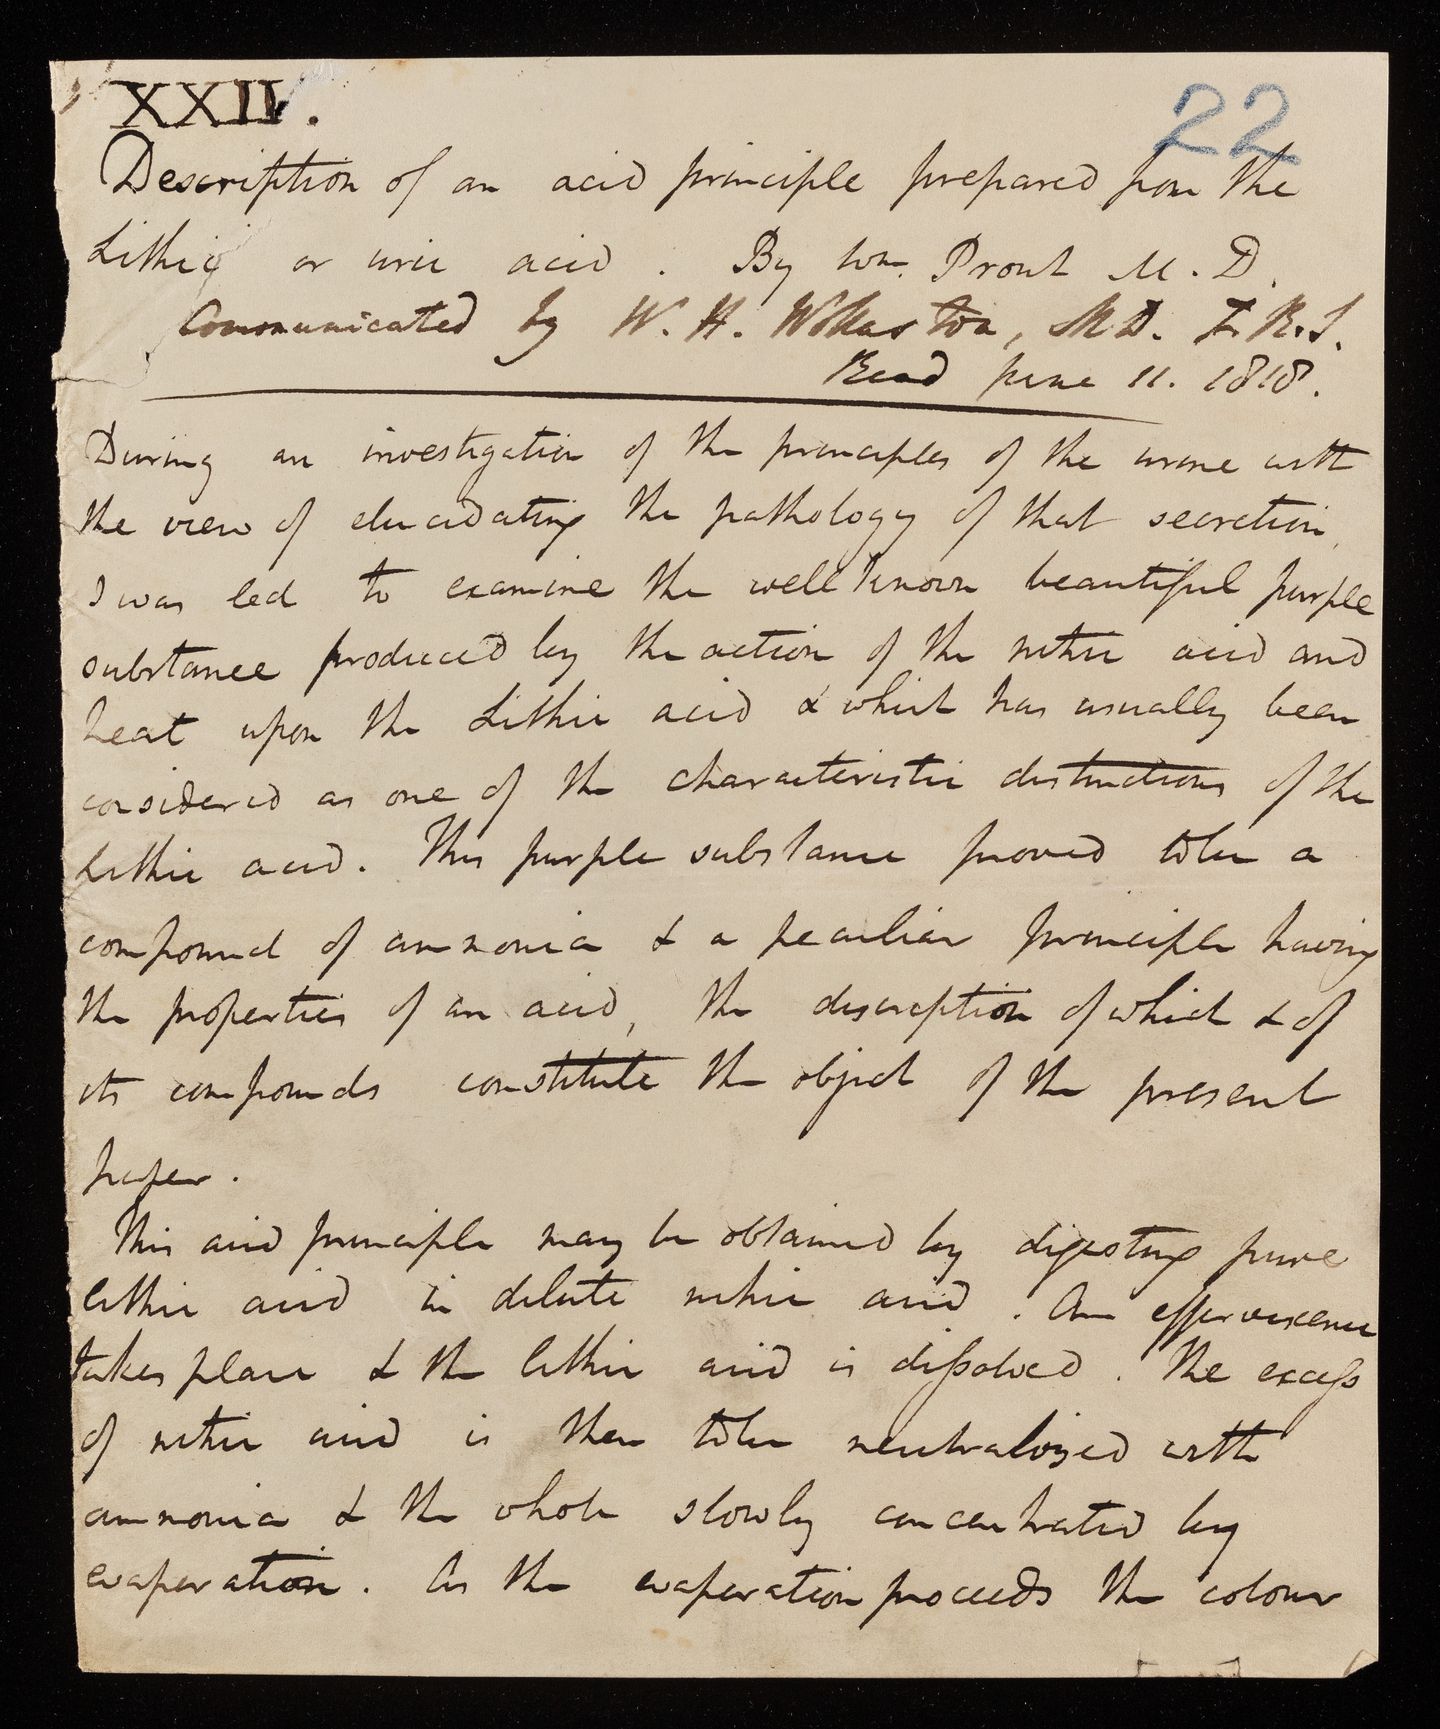 XXIV.
22
Description of an acid principle prepared from the
Lithic or uric acid. By Wm. Prout M.D.
Communicated by W. H. Wollaston, M.D. F.R.S.
Read June 11. 1818.
During an investigation of the principles of the urine with
the view of elucidating the pathology of that secretion,
I was led to examine the well known beautiful purple
substance produced by the action of the nitric acid and
heat upon the Lithic acid & which has usually been
considered as one of the characteristic distinctions of the
Lithic acid. This purple substance proved to be a
compound of ammonia & a peculiar principle having
the properties of an acid, the description of which & of
its compounds constitute the object of the present
paper.
This acid principle may be obtained by digesting pure
lithic acid in dilute nitric acid. An effervescence
takes place & the lithic acid is dissolved. The excess
of nitric acid is then to be neutralized with
ammonia & the whole slowly concentrated by
evaporation. As the evaporation proceeds the colour